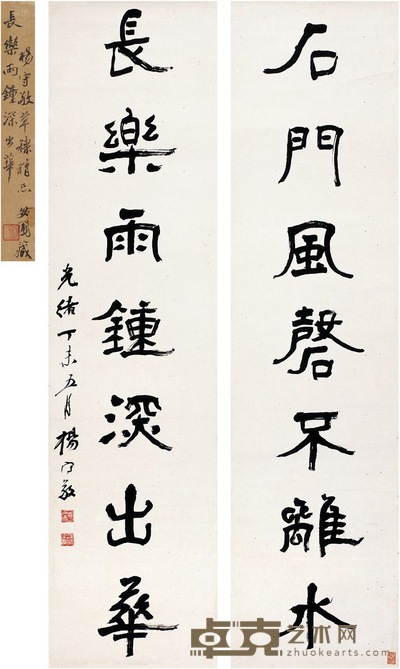 石門風磬不離水
長樂雨鍾深出華
光緒丁未五月楊守敬
楊守敬草隸精品
長樂雨鍾深出華
卓克艺术网
zhuokearts.com